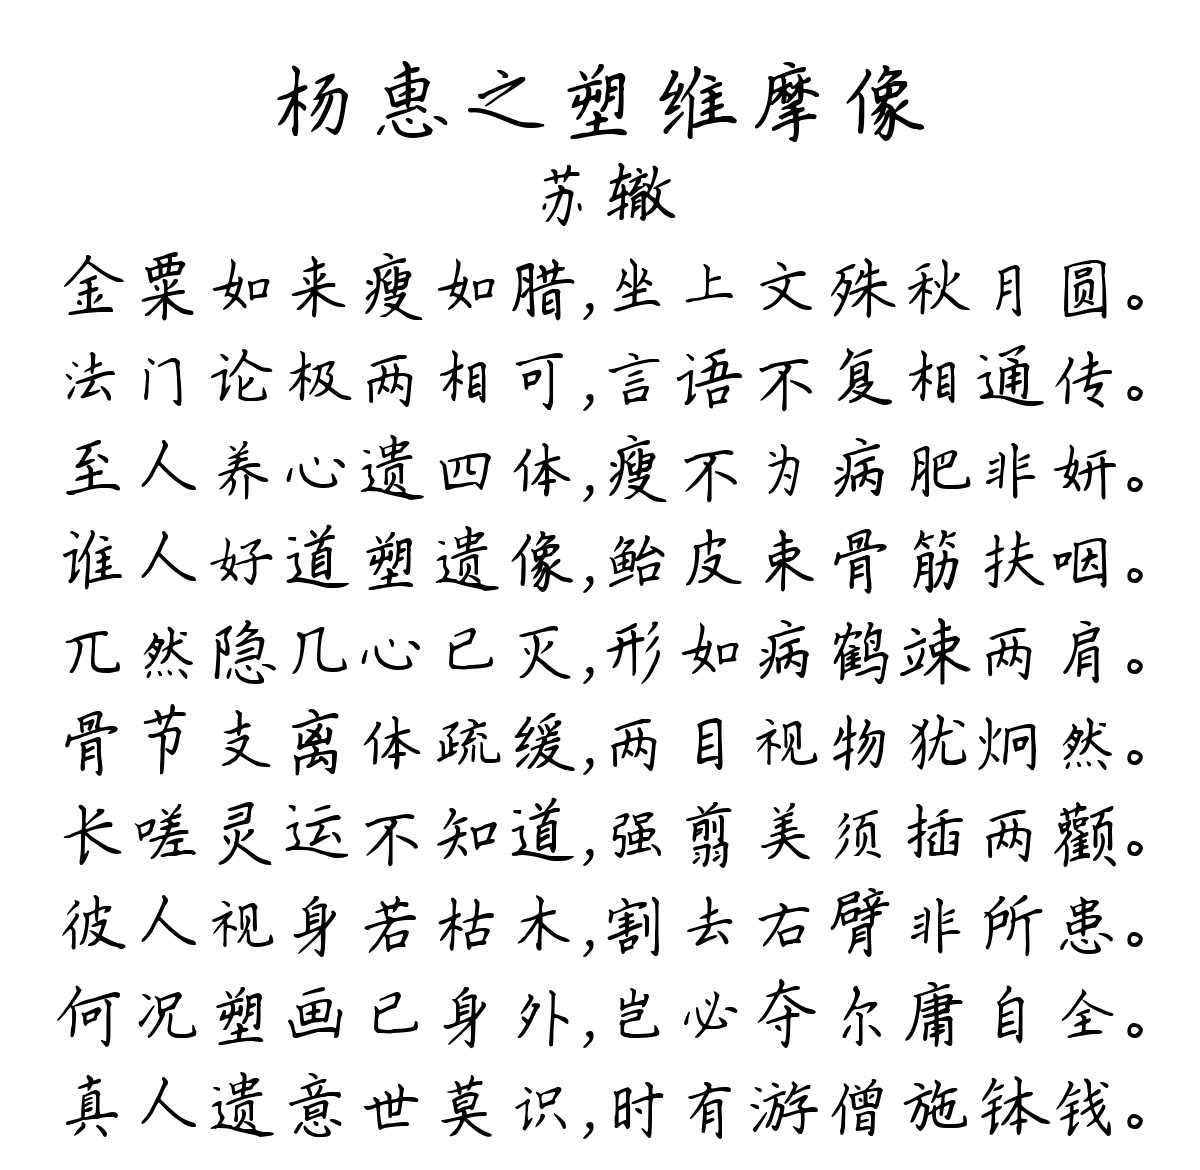 杨惠之塑维摩像
苏辙
金粟如来瘦如腊,坐上文殊秋月圆。
法门论极两相可,言语不复相通传。
至人养心遗四体,瘦不为病肥非妍。
谁人好道塑遗像,鲐皮束骨筋扶咽。
兀然隐几心已灭,形如病鹤竦两肩。
骨节支离体疏缓,两目视物犹炯然。
长嗟灵运不知道,强翦美须插两颧。
彼人视身若枯木,割去右臂非所患。
何况塑画已身外,岂必夺尔庸自全。
真人遗意世莫识,时有游僧施钵钱。